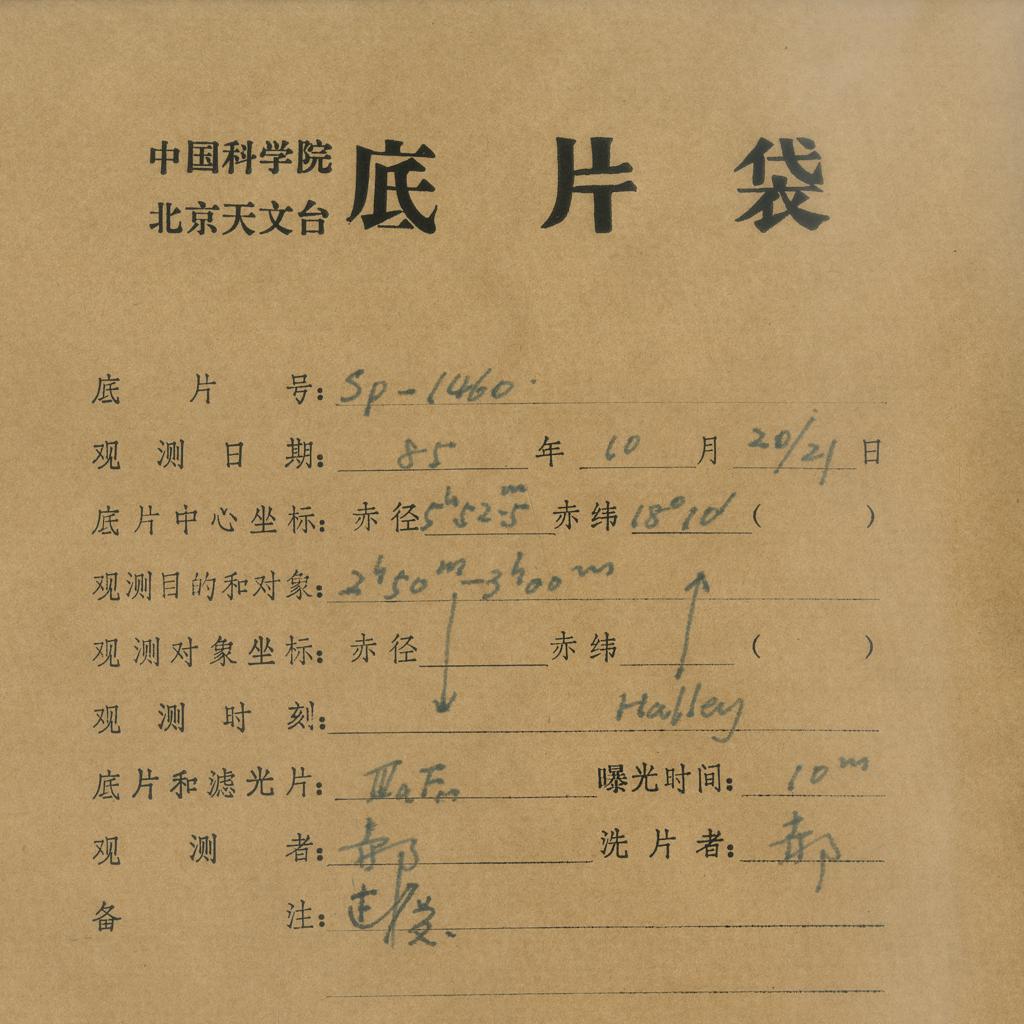 中国科学院
北京天文台
底片袋
底片号：Sp-1460.
观测日期：85年10月20/21日
底片中心坐标：赤径5h52m.5赤纬18°10′（ ）
观测目的和对象：2h50m-3h00m
观测对象坐标：赤径 赤纬 （ ）
观测时刻： Halley
底片和滤光片：ⅢaF 曝光时间：10m
观测者：郝 洗片者：郝
备注：